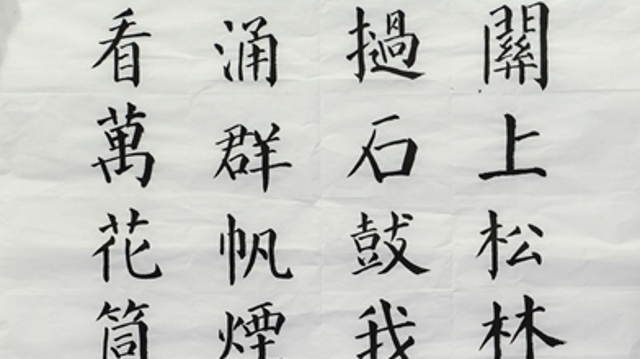 關上松林
撾石鼓我
涌群帆煙
看萬花筒